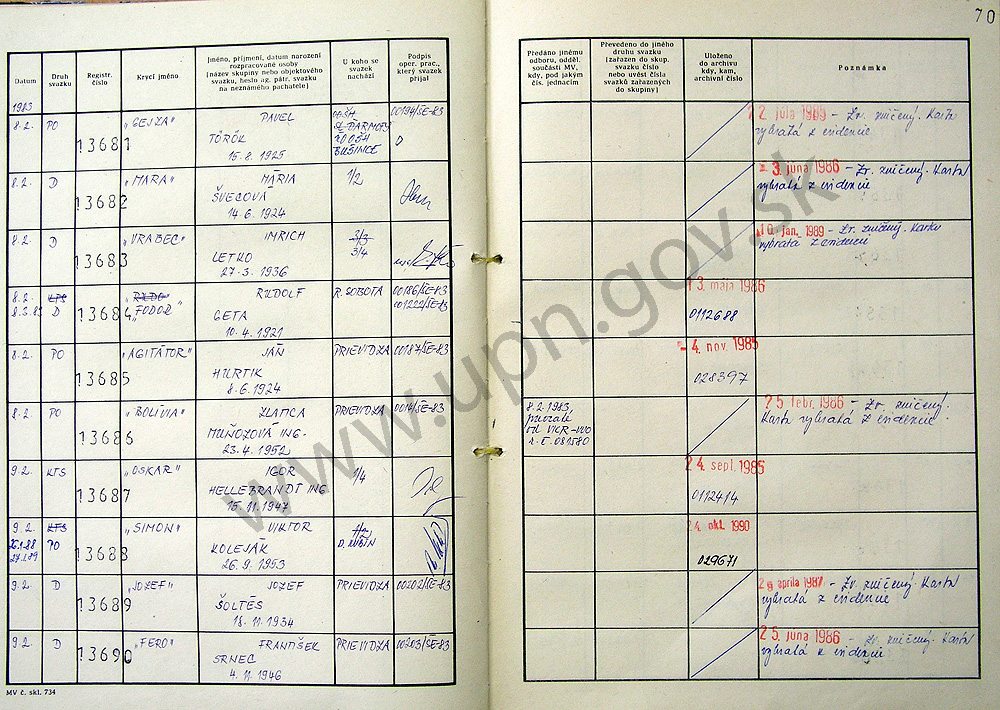 70
Datum
Druh svazku
Registr. číslo
Krycí jméno
Jméno, příjmení, datum narození rozpracované osoby [název skupiny nebo objektového svazku, heslo ag. pátr. svazku na neznámého pachatele]
U koho se svazek nachází
Podpis oper. prac., který svazek přijal
Předáno jinému odboru, odděl. součásti MV, kdy, pod jakým čís. jednacím
Převedeno do jiného druhu svazku [zařazen do skup. svazku číslo nebo uvést čísla svazků zařazených do skupiny]
Uloženo do archivu kdy, kam, archivní číslo
Poznámka
1983
8.2. PO 13681 „GEJZA" PAVEL
TÖRÖK
15.8.1925
BUŠINCE
00194/ŠE-83
2. júla 1985 - Zv. zničený. Karta
vybratá z evidencie
8.2. D 13682 „MARA" MÁRIA 1/2
ŠVECOVÁ
14.6.1924
3. júna 1986 - Zv. zničený. Karta
vybratá z evidencie
8.2. D 13683 „VRABEC" IMRICH 3/3
LETKO 3/4
27.3.1936
10. jan. 1989 - Zv. zničený. Karta
vybratá z evidencie
8.2. KTS 13684 „FODOR" RUDOLF R. SOBOTA 00186/ŠE-83
D GETA 001222/ŠE-83
10.4.1921
13. mája 1986
0112688
8.2. PO 13685 „AGITÁTOR" JÁN PRIEVIDZA 00187/ŠE-83
HURTIK
8.6.1924
- 4. nov. 1985
028397
8.2. PO 13686 „BOLÍVIA" ZLATICA PRIEVIDZA
MUŇOZOVÁ ING.
23.4.1952
8.2.1983,
č. 081580
25. febr. 1986 - Zv. zničený.
Karta vybratá z evidencie
9.2. KTS 13687 „OSKAR" IGOR 1/4
HELLEBRANDT ING
15.11.1947
24. sept. 1985
0112414
9.2. KTS 13688 „SIMON" VIKTOR
26.1.88 PO KOLEJÁK D. KUBÍN
26.9.1953
24. okt. 1990
029671
9.2. D 13689 „JOZEF" JOZEF PRIEVIDZA 00202/ŠE-83
ŠOLTÉS
18.11.1934
apríla 1987 - Zv. zničený. Karta
vybratá z evidencie
9.2. D 13690 „FERO" FRANTIŠEK PRIEVIDZA 00203/ŠE-83
SRNEC
4.11.1946
25. júna 1986 - Zv. zničený. Karta
vybratá z evidencie
MV č. skl. 734
www.upn.gov.sk